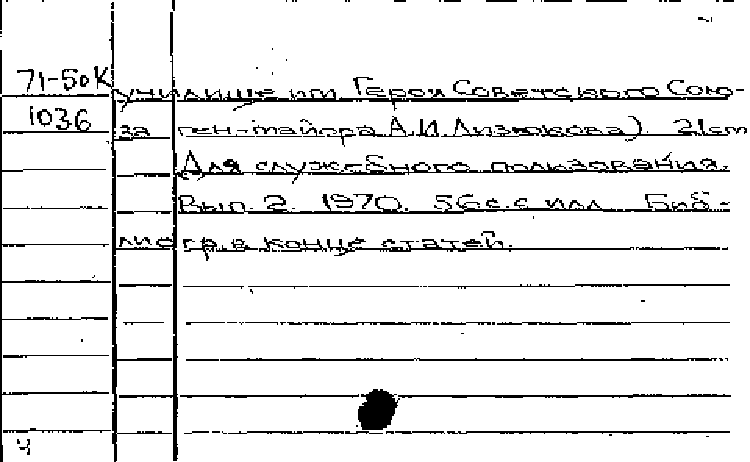 71-50К училище им. Героя Советского Сою-
1036 за ген-майора А.И. Лизюкова). 21см
Для служебного пользования.
Вып. 2. 1970. 56 с. с илл. Биб-
лиогр. в конце статей.
Ч